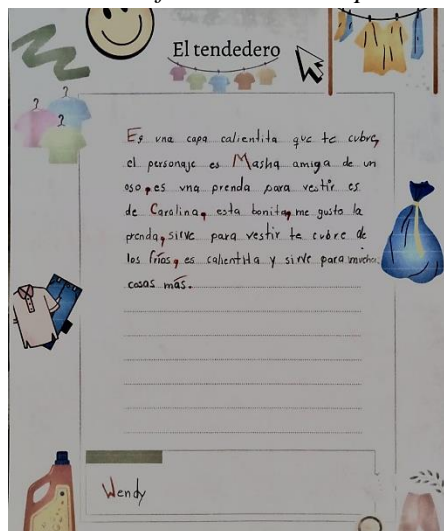 El tendedero
Es una capa calientita que te cubre,
el personaje es Masha amiga de un
oso, es una prenda para vestir es
de Carolina, esta bonita, me gusta la
prenda, sirve para vestir te cubre de
los fríos, es calientita y sirve para muchas
cosas más.
Wendy